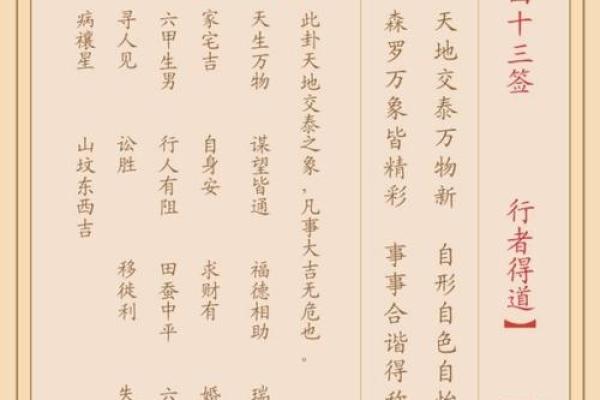 十三签 行者得道】
天地交泰万物新 自形自色自怡
森罗万象皆精彩 事事合谐得称
此卦天地交泰之象，凡事大吉无危也。
天生万物 谋望皆通 福德相助 瑞
家宅吉 自身安 求财有 婚
六甲生男 行人有阻 田蚕中平 六
寻人见 讼胜 移徙利 失
病禳星 山坟东西吉